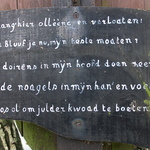 anghier allééne en verloaten!
Bluuf je nu, mijn beste moaten?
doirens in mijn hoofd doen zeer
de noagels in mijn han' en voe
os ol om julder kwoad te boeten